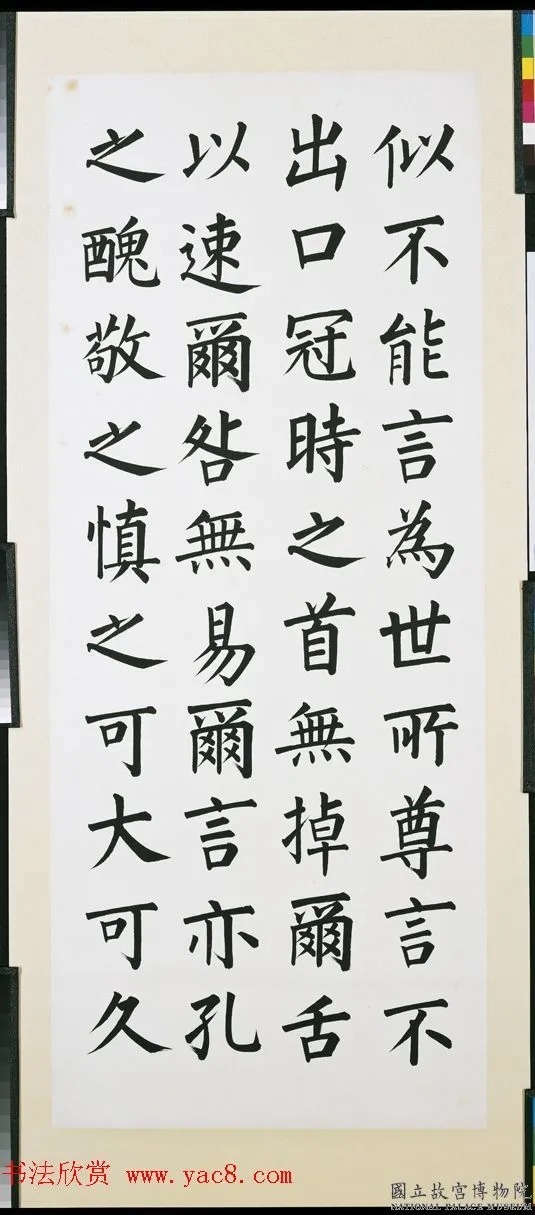 似不能言為世所尊言不
出口冠時之首無掉爾舌
以速爾咎無易爾言亦孔
之醜敬之慎之可大可久
书法欣赏 www.yac8.com
國立故宮博物院
NATIONAL PALACE MUSEUM